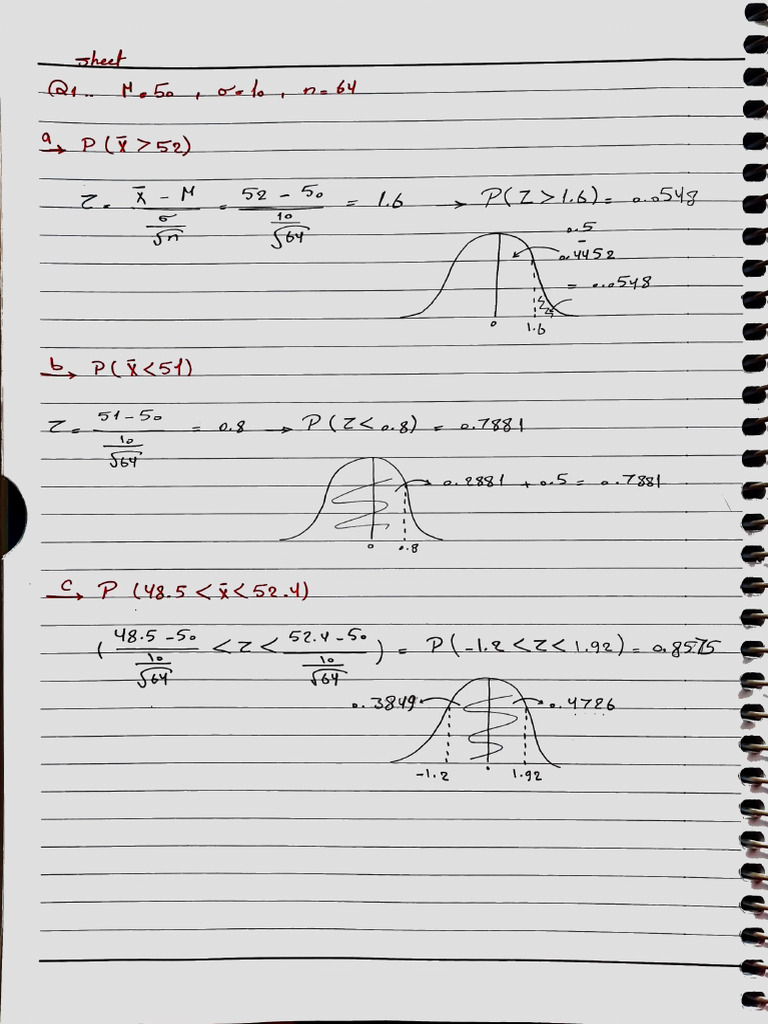 sheet
Q1.. M=50 , σ=10 , n=64
a → P(x̄>52)
Z = (x̄ - M)/(σ/√n) = (52 - 50)/(10/√64) = 1.6 → P(Z>1.6) = 0.0548
0.5
-
0.4452
= 0.0548
0 1.6
b → P(x̄<51)
Z = (51-50)/(10/√64) = 0.8 → P(Z<0.8) = 0.7881
0.2881 + 0.5 = 0.7881
0 0.8
c → P (48.5 < x̄ < 52.4)
( (48.5-50)/(10/√64) < Z < (52.4-50)/(10/√64) ) = P(-1.2 < Z < 1.92) = 0.8575
0.3849 0.4726
-1.2 0 1.92